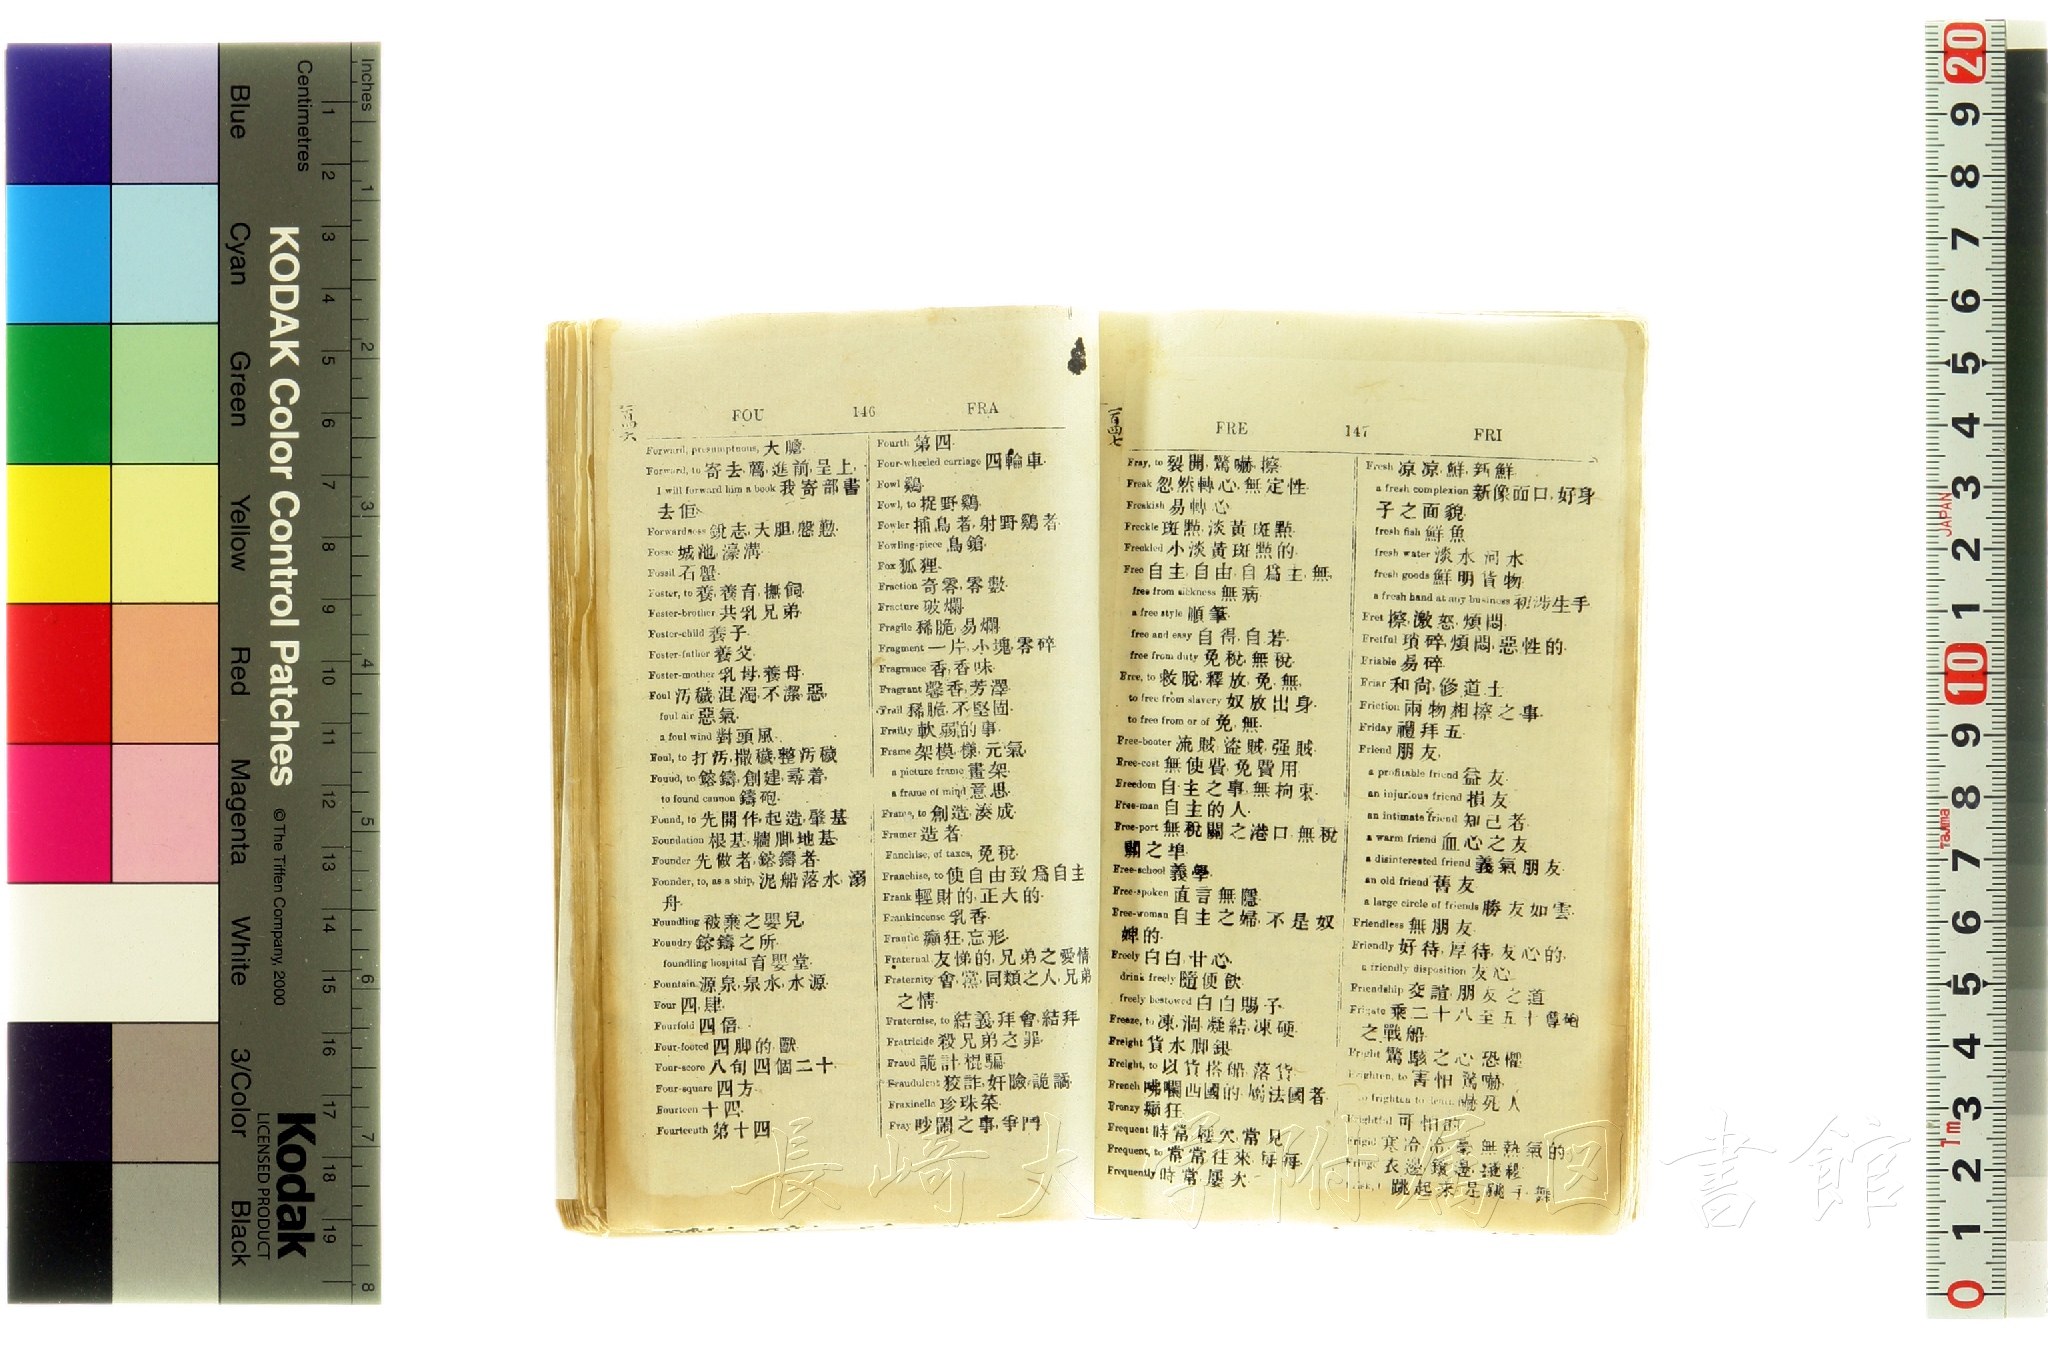 Inches
Centimetres
KODAK Color Control Patches
© The Tiffen Company, 2000
Kodak
LICENSED PRODUCT
Blue
Cyan
Green
Yellow
Red
Magenta
White
3/Color
Black
一百四六
FOU 146 FRA
Forward, presumptuous, 大膽.
Forward, to 寄去, 薦, 進前, 呈上,
I will forward him a book 我寄部書
去佢
Forwardness 銳志, 大胆, 慇懃.
Fosse 城池, 濠溝
Fossil 石蟹.
Foster, to 養, 養育, 撫飼.
Foster-brother 共乳兄弟
Foster-child 養子
Foster-father 養父
Foster-mother 乳母, 養母.
Foul 汚穢, 混濁, 不潔, 惡,
foul air 惡氣.
a foul wind 對頭風
Foul, to 打汚, 撒穢, 整汚穢
Found, to 鎔鑄, 創建, 尋着,
to found cannon 鑄砲.
Found, to 先開作, 起造, 肇基
Foundation 根基, 牆脚, 地基
Founder 先做者, 鎔鑄者.
Founder, to, as a ship, 泥船落水, 溺
舟.
Foundling 被棄之嬰兒
Foundry 鎔鑄之所
foundling hospital 育嬰堂.
Fountain 源泉, 泉水, 水源.
Four 四, 肆.
Fourfold 四倍.
Four-footed 四脚的, 獸
Four-score 八旬, 四個二十.
Four-square 四方.
Fourteen 十四
Fourteenth 第十四
Fourth 第四.
Four-wheeled carriage 四輪車.
Fowl 鷄.
Fowl, to 捉野鷄.
Fowler 捕鳥者, 射野鷄者
Fowling-piece 鳥鎗.
Fox 狐狸.
Fraction 奇零, 零數.
Fracture 破爛.
Fragile 稀脆, 易爛
Fragment 一片, 小塊, 零碎
Fragrance 香, 香味.
Fragrant 馨香, 芳澤.
Frail 稀脆, 不堅固.
Frailty 軟弱的事.
Frame 架, 模, 樣, 元氣.
a picture frame 畫架.
a frame of mind 意思.
Frame, to 創造, 湊成.
Framer 造者.
Fanchise, of taxes, 免稅.
Franchise, to 使自由, 致爲自主
Frank 輕財的, 正大的.
Frankincense 乳香.
Frantic 癲狂, 忘形.
Fraternal 友悌的, 兄弟之愛情
Fraternity 會, 黨, 同類之人, 兄弟
之情.
Fraternise, to 結義, 拜會, 結拜
Fratricide 殺兄弟之罪
Fraud 詭計, 棍騙.
Fraudulent 狡詐, 奸險, 詭譎.
Fraxinella 珍珠菜.
Fray 吵鬧之事, 爭鬥
一百四七
FRE 147 FRI
Fray, to 裂開, 驚嚇, 擦.
Freak 忽然轉心, 無定性.
Freakish 易轉心
Freckle 斑點, 淡黃斑點.
Freckled 小淡黃斑點的.
Free 自主, 自由, 自爲主, 無,
free from sickness 無病.
a free style 順筆.
free and easy 自得, 自若.
free from duty 免稅, 無稅.
Free, to 救脫, 釋放, 免, 無,
to free from slavery 奴放出身.
to free from or of 免, 無.
Free-booter 流賊, 盜賊, 强賊.
Free-cost 無使費, 免費用.
Freedom 自主之事, 無拘束.
Free-man 自主的人.
Free-port 無稅關之港口, 無稅
關之埠.
Free-school 義學.
Free-spoken 直言無隱.
Free-woman 自主之婦, 不是奴
婢的.
Freely 白白, 甘心.
drink freely 隨便飲.
freely bestowed 白白賜予
Freeze, to 凍, 凅, 凝結, 凍硬.
Freight 貨水脚銀.
Freight, to 以貨搭船, 落貨.
French 咈囒西國的, 屬法國者
Frenzy 癲狂
Frequent 時常, 屢次, 常見
Frequent, to 常常往來, 每每.
Frequently 時常, 屢次.
Fresh 凉凉, 鮮, 新鮮.
a fresh complexion 新像面口, 好身
子之面貌.
fresh fish 鮮魚
fresh water 淡水, 河水
fresh goods 鮮明貨物.
a fresh hand at any business 初涉生手
Fret 擦, 激怒, 煩悶.
Fretful 瑣碎, 煩悶, 惡性的.
Friable 易碎.
Friar 和尙, 修道士.
Friction 兩物相擦之事.
Friday 禮拜五.
Friend 朋友.
a profitable friend 益友.
an injurious friend 損友
an intimate friend 知己者.
a warm friend 血心之友
a disinterested friend 義氣朋友.
an old friend 舊友
a large circle of friends 勝友如雲.
Friendless 無朋友.
Friendly 好待, 厚待, 友心的.
a friendly disposition 友心.
Friendship 交誼, 朋友之道
Frigate 乘二十八至五十尊砲
之戰船.
Fright 驚駭之心, 恐懼
Frighten, to 害怕, 驚嚇.
to frighten to death 嚇死人
Frightful 可怕的
Frigid 寒冷, 冷, 無熱氣的
長崎大学附属図書館
JAPAN
Tajima
1m